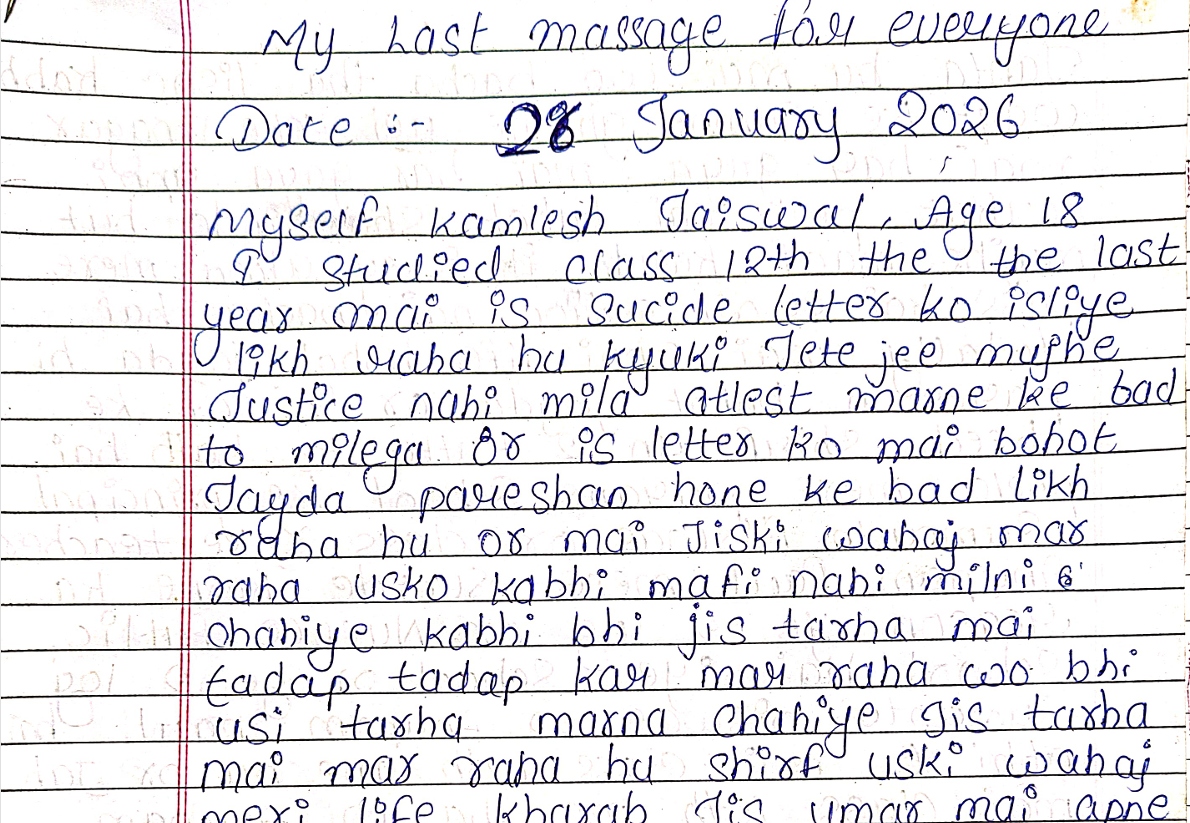 My Last massage for everyone
Date :- 28 January 2026
Myself Kamlesh Jaiswal, Age 18
I Studied class 12th the the last
year mai is Sucide letter ko isliye
likh raha hu kyuki Jete jee mujhe
Justice nahi mila atlest marne ke bad
to milega or is letter ko mai bohot
Jayda pareshan hone ke bad Likh
raha hu or mai Jiski wahaj mar
raha usko kabhi mafi nahi milni
chahiye kabhi bhi jis tarha mai
tadap tadap kar mar raha wo bhi
usi tarha marna chahiye jis tarha
mai mar raha hu shirf uski wahaj
meri life kharab jis umar mai apne